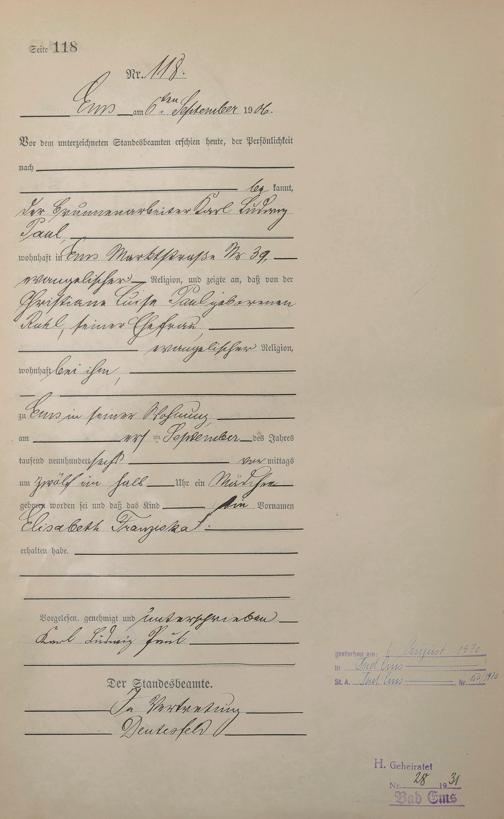 Seite 118
Nr. 118.
Ems am 6ten September 1906.
Vor dem unterzeichneten Standesbeamten erschien heute, der Persönlichkeit
nach
be kannt,
der Brunnenarbeiter Karl Ludwig
Paul,
wohnhaft in Ems Marktstraße Nr 39,
evangelischer Religion, und zeigte an, daß von der
Christiane Luise Paul geborenen
Ruhl, seiner Ehefrau,
evangelischer Religion,
wohnhaft bei ihm,
zu Ems, in seiner Wohnung,
am September des Jahres
tausend neunhundert sechs vor mittags
um zwölf ein halb Uhr ein Mädchen
geboren worden sei und daß das Kind die Vornamen
Elisabeth Franziska
erhalten habe.
Vorgelesen, genehmigt und unterschrieben
Karl Ludwig Paul
Der Standesbeamte.
In Vertretung
gestorben am: August 1970
in Bad Ems
St. A. Bad Ems Nr.
H. Geheiratet
Nr. 28 1931
Bad Ems